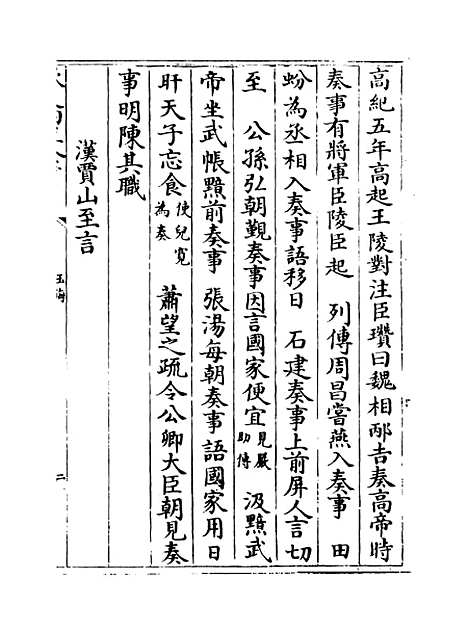 高紀五年高起王陵對注臣瓚曰魏相邴吉奏高帝時
奏事有將軍臣陵臣起　列傳周昌嘗燕入奏事　田
蚡為丞相入奏事語移日　石建奏事上前屏人言切
至　公孫弘朝覲奏事因言國家便宜見嚴助傳　汲黯武
帝坐武帳黯前奏事　張湯每朝奏事語國家用日
旰天子忘食使兒寛為奏　蕭望之疏令公卿大臣朝見奏
事明陳其職
漢賈山至言
玉海
二